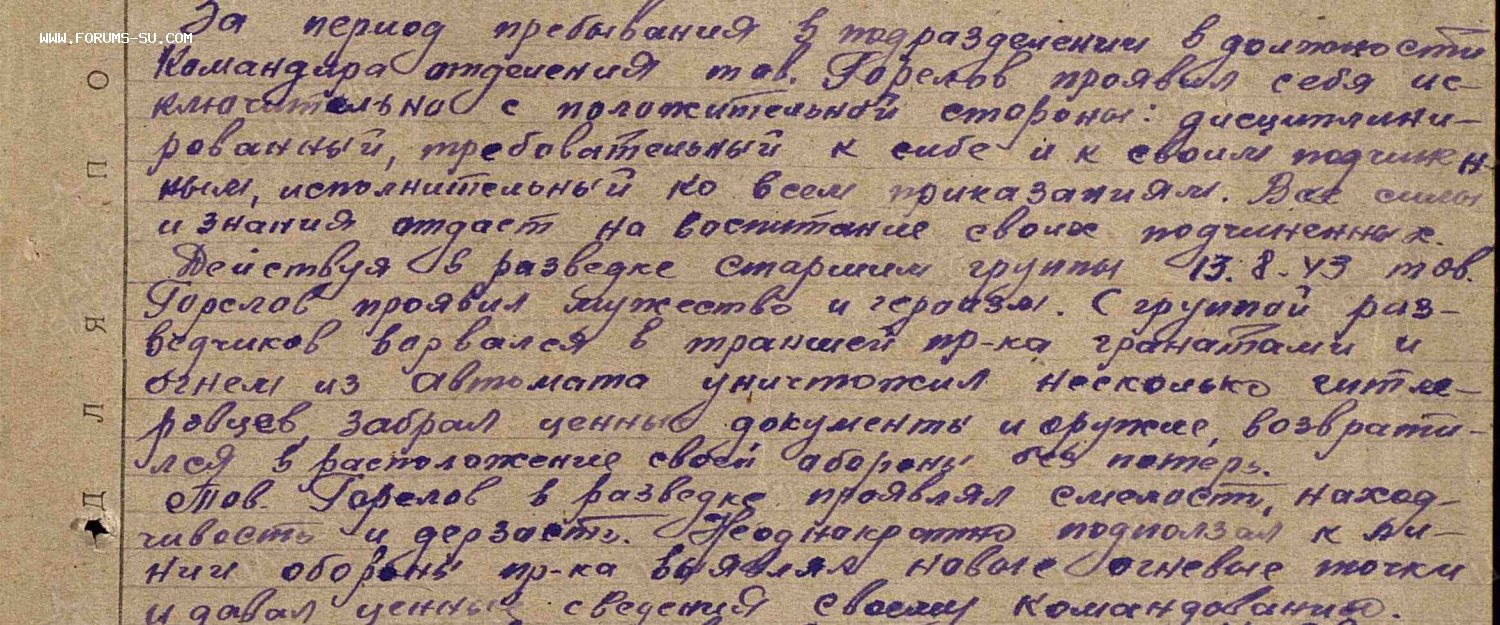 За период пребывания в подразделении в должности
WWW.FORUMS-SU.COM
командира отделения тов. Горелов проявил себя ис-
ключительно с положительной стороны: дисциплини-
рованный, требовательный к себе и к своим подчинен-
ным, исполнительный ко всем приказаниям. Все силы
и знания отдает на воспитание своих подчиненных.
Действуя в разведке старшим группы 13.8.43 тов.
Горелов проявил мужество и героизм. С группой раз-
ведчиков ворвался в траншей пр-ка гранатами и
огнем из автомата уничтожил несколько гитле-
ровцев, забрал ценные документы и оружие, возврати-
лся в расположение своей обороны без потерь.
Тов. Горелов в разведке проявлял смелость, наход-
чивость и дерзасть. Неоднократно подползал к ли-
нии обороны пр-ка выявлял новые огневые точки
и давал ценные сведения своему командованию.
Д Л Я П О